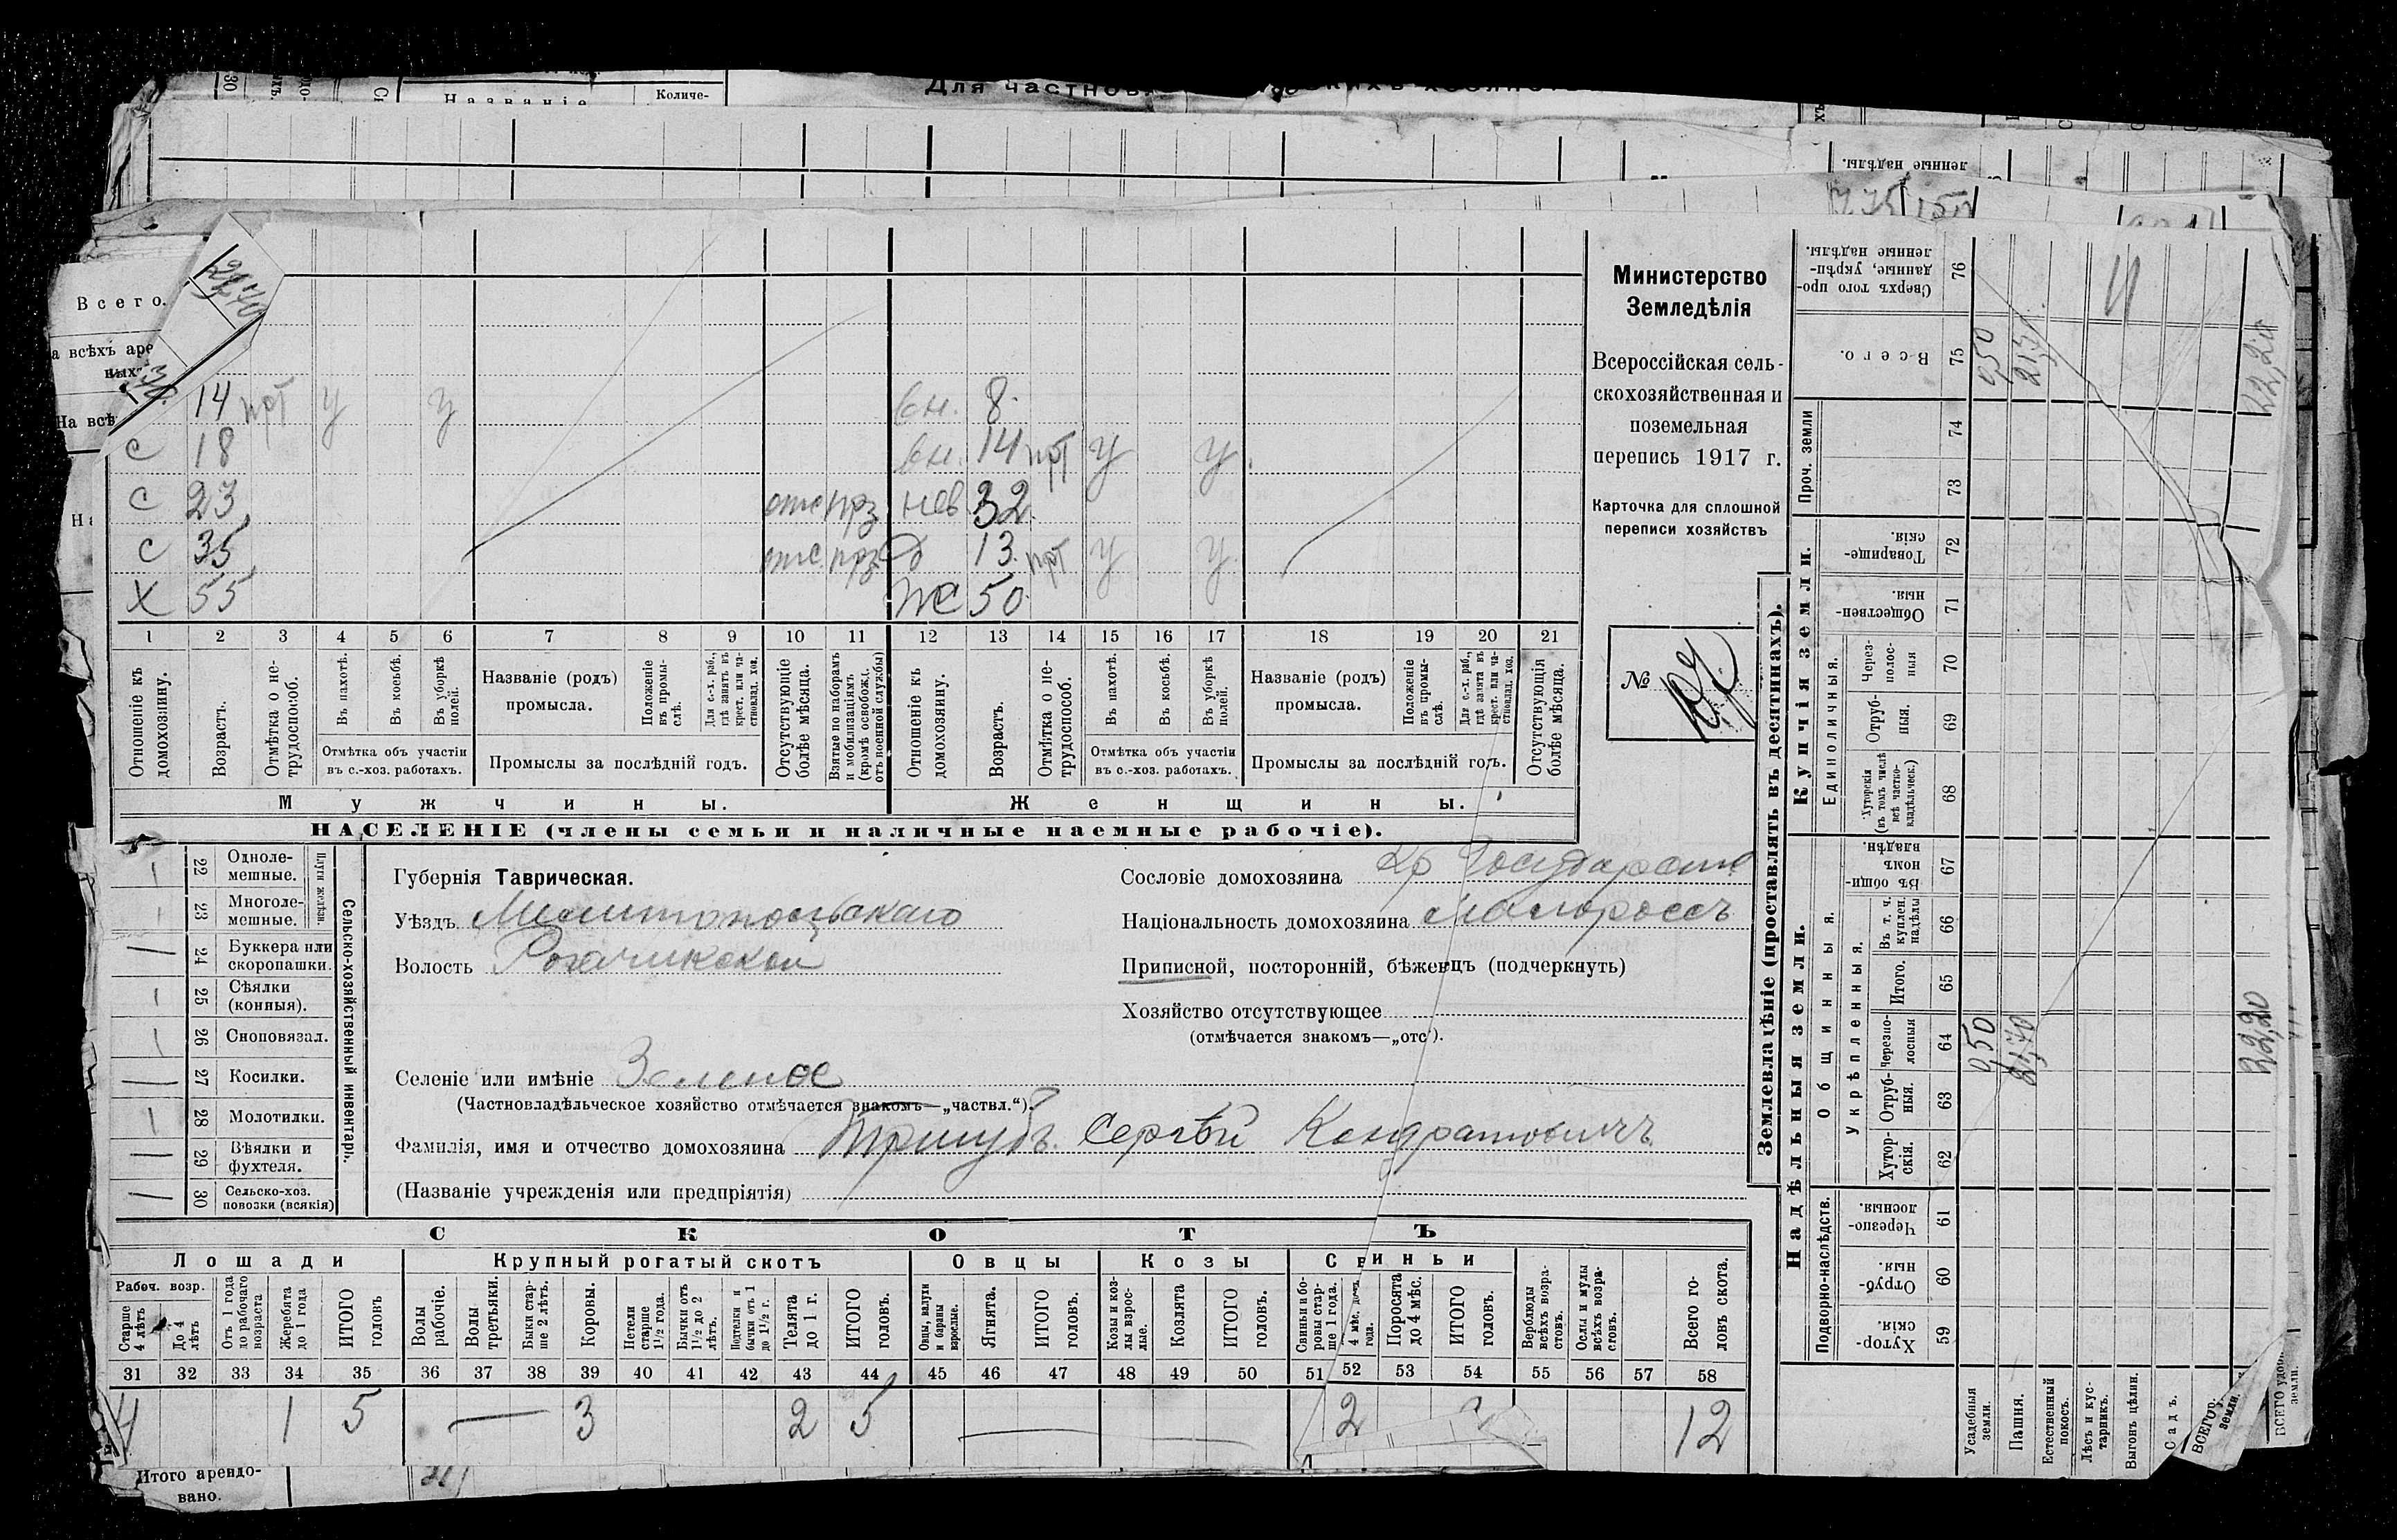 Для частнов
Названіе
Количе-
ленные надѣлы.
Всего.
22,70
а всѣхъ аре
ныхъ
На всѣ
14 прт у у вн. 8.
С 18 вн. 14 прт у у
С 23 отс прз нев 32
С 35 отс прз д 13 прт у у
Х 55 Ж 50
1 2 3 4 5 6 7 8 9 10 11 12 13 14 15 16 17 18 19 20 21
Отношеніе къ домохозяину.
Возрастъ.
Отмѣтка о не-трудоспособ.
Въ пахотѣ.
Въ косьбѣ.
Въ уборкѣ полей.
Отмѣтка объ участіи въ с.-хоз. работахъ.
Названіе (родъ) промысла.
Положеніе въ промы-слѣ.
Для с.-х. раб., гдѣ занятъ въ крест. или ча-стновлад. хоз.
Промыслы за послѣдній годъ.
Отсутствующіе болѣе мѣсяца.
Взятые по наборамъ и мобилизаціямъ (кромѣ освобожд. отъ военной службы)
Отношеніе къ домохозяину.
Возрастъ.
Отмѣтка о не-трудоспособ.
Въ пахотѣ.
Въ косьбѣ.
Въ уборкѣ полей.
Отмѣтка объ участіи въ с.-хоз. работахъ.
Названіе (родъ) промысла.
Положеніе въ промы-слѣ.
Для с.-х. раб., гдѣ занята въ крест. или ча-стновлад. хоз.
Промыслы за послѣдній годъ.
Отсутствующія болѣе мѣсяца.
Мужчины.
Женщины.
НАСЕЛЕНІЕ (члены семьи и наличные наемные рабочіе).
Министерство
Земледѣлія
Всероссійская сель-
скохозяйственная и
поземельная
перепись 1917 г.
Карточка для сплошной
переписи хозяйствъ
№
Сельско-хозяйственный инвентарь.
Плуги желѣзн.
1 22 Одноле-мешные.
1 23 Многоле-мешные.
— 24 Буккера или скоропашки.
1 25 Сѣялки (конныя).
1 26 Сноповязал.
— 27 Косилки.
1 28 Молотилки.
— 29 Вѣялки и фухтеля.
— 30 Сельско-хоз. повозки (всякія)
Губернія Таврическая.
Уѣздъ Мелитопольскаго
Волость Рогачикской
Сословіе домохозяина кр Государств
Національность домохозяина малороссъ
Приписной, посторонній, бѣженецъ (подчеркнуть)
Хозяйство отсутствующее
(отмѣчается знакомъ—„отс“).
Селеніе или имѣніе Зеленое
(Частновладѣльческое хозяйство отмѣчается знакомъ—„частвл.“).
Фамилія, имя и отчество домохозяина Тригубъ Сергѣй Кондратовичъ
(Названіе учрежденія или предпріятія)
СКОТЪ
Лошади
Крупный рогатый скотъ
Овцы
Козы
Свиньи
Рабоч. возр.
Старше 4 лѣтъ
До 4 лѣтъ
Отъ 1 года до рабочаго возраста
Жеребята до 1 года
ИТОГО головъ
Волы рабочіе.
Волы третьяки.
Быки стар-ше 2 лѣтъ.
Коровы.
Нетели старше 1½ года.
Бычки отъ 1½ до 2 лѣтъ.
Подтелки и бычки отъ 1 до 1½ г.
Телята до 1 г.
ИТОГО головъ.
Овцы, валухи и бараны взрослые.
Ягнята.
ИТОГО головъ.
Козы и коз-лы взрос-лые.
Козлята
ИТОГО головъ.
Свиньи и бо-ровы стар-ше 1 года.
4 мѣс. до 1 года.
Поросята до 4 мѣс.
ИТОГО головъ.
Верблюды всѣхъ возра-стовъ.
Ослы и мулы всѣхъ возра-стовъ.
Всего го-ловъ скота.
31 32 33 34 35 36 37 38 39 40 41 42 43 44 45 46 47 48 49 50 51 52 53 54 55 56 57 58
4 1 5 — 3 2 5 — 2 2 12
Итого арендо-
вано.
Землевладѣніе (проставлять въ десятинахъ).
Купчія земли.
Надѣльныя земли.
Сверхъ того про-данные, укрѣп-ленные надѣлы. 76
Всего. 75 0,50 21,70 22,20
Проч. земли 74 73
Товарище-скія. 72
Обществен-ныя. 71
Единоличныя.
Через-полос-ныя 70
Отруб-ныя. 69
Хуторскія (въ томъ числѣ всѣ частно-владѣльческ.) 68
Общинныя.
Въ общин-номъ владѣн. 67
Укрѣпленныя.
Въ т. ч. куплен. надѣлы 66
Итого. 65
Черезпо-лосныя 64 0,50 21,70 22,20
Отруб-ныя. 63
Хутор-скія. 62
Подворно-наслѣдств.
Черезпо-лосныя. 61
Отруб-ныя. 60
Хутор-скія. 59
Усадебныя земли.
Пашня.
Естественный покосъ.
Лѣсъ и кус-тарникъ.
Выгонъ цѣлин.
Садъ.
ВСЕГО
земли.
ВСЕГО удобн. земли.